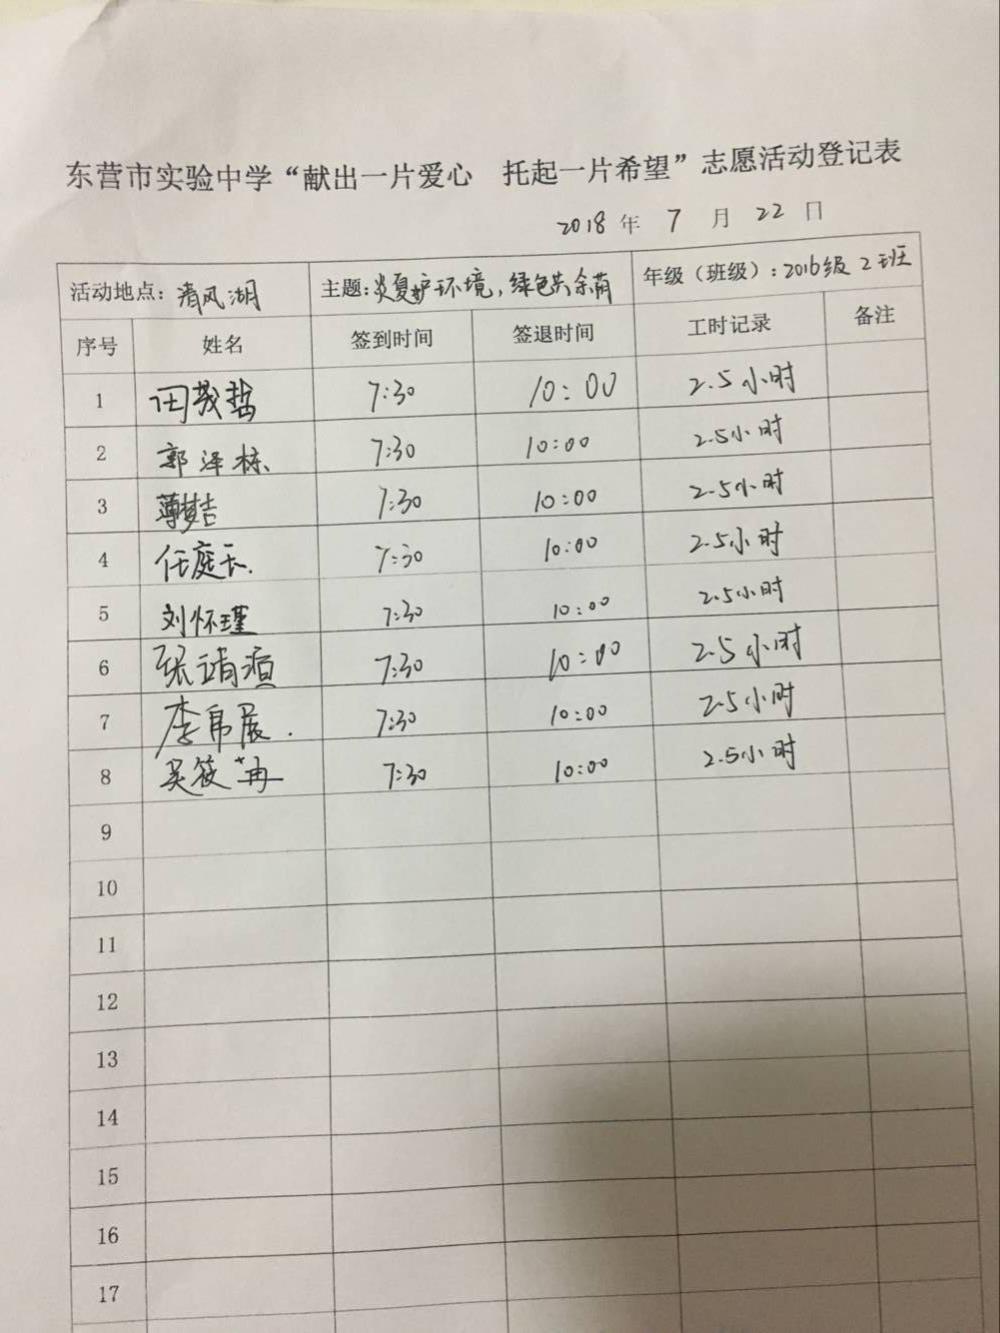 东营市实验中学“献出一片爱心 托起一片希望”志愿活动登记表
2018 年 7 月 22 日
活动地点：清风湖 主题：炎夏护环境，绿色共余荫 年级（班级）：2016级2班
序号 姓名 签到时间 签退时间 工时记录 备注
1 田茂哲 7:30 10:00 2.5小时
2 郭泽栋 7:30 10:00 2.5小时
3 薄梦吉 7:30 10:00 2.5小时
4 任庭 7:30 10:00 2.5小时
5 刘怀瑾 7:30 10:00 2.5小时
6 张靖 7:30 10:00 2.5小时
7 李帛展. 7:30 10:00 2.5小时
8 吴筱苒 7:30 10:00 2.5小时
9
10
11
12
13
14
15
16
17